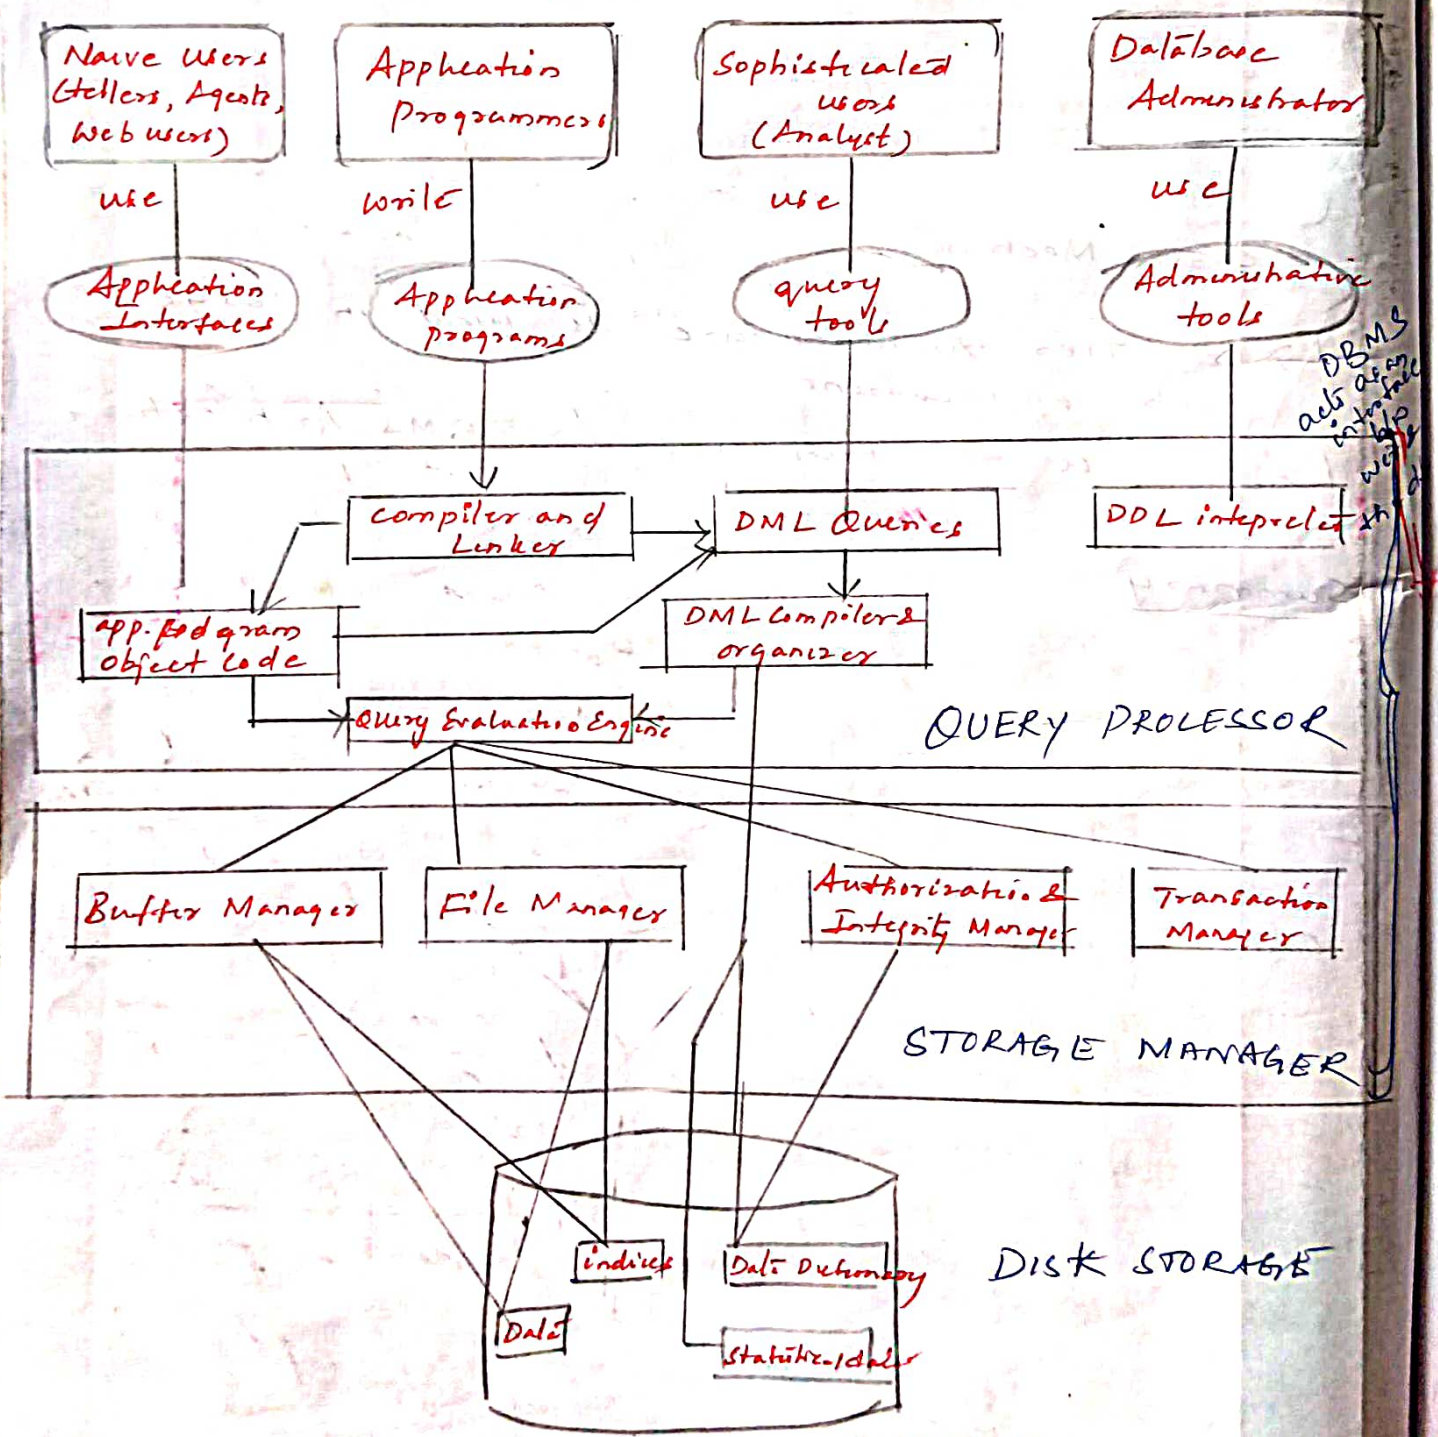 Naive Users
(tellers, Agents,
Web users)
Application
Programmers
Sophisticated
users
(Analyst)
Database
Administrator
use
write
use
use
Application
Interfaces
Application
programs
query
tools
Administrative
tools
DBMS
acts as an
interface
b/w
Compiler and
Linker
DML Queries
DDL intepreter
app. program
object code
DML Compiler &
organizer
Query Evaluation Engine
QUERY PROCESSOR
Buffer Manager
File Manager
Authorization &
Integrity Manager
Transaction
Manager
STORAGE MANAGER
indices
Data Dictionary
DISK STORAGE
Data
Statistical data